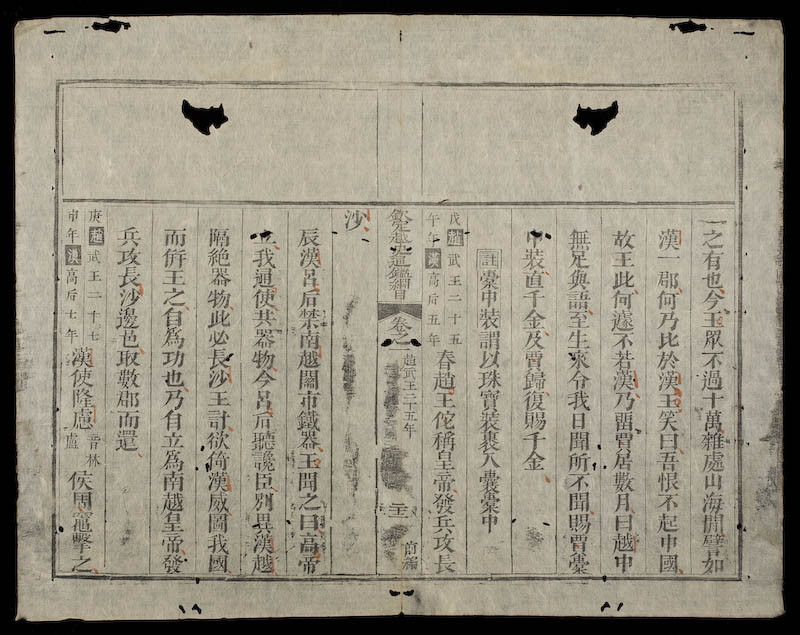 一之有也今王眾不過十萬雜處山海間譬如
漢一郡何乃比於漢王笑曰吾恨不起中國
故王此何遽不若漢乃畱賈居數月曰越中
無足與語至生來令我日聞所不聞賜賈橐
中裝直千金及賈歸復賜千金
註橐中裝謂以珠寶裝裹入囊橐中
戊趙武王二十五
午年漢高后五年
春趙王佗稱皇帝發兵攻長
欽定越史通鑑綱目 卷之 趙武王二十五年 前編
沙
辰漢呂后禁南越關市鐵器王聞之曰高帝
立我通使共器物今呂后聽讒臣別異漢越
隔絕器物此必長沙王計欲倚漢威圖我國
而併王之自爲功也乃自立爲南越皇帝發
兵攻長沙邊邑取數郡而還
庚趙武王二十七
申年漢高后七年
漢使隆慮音林盧侯周竈擊之